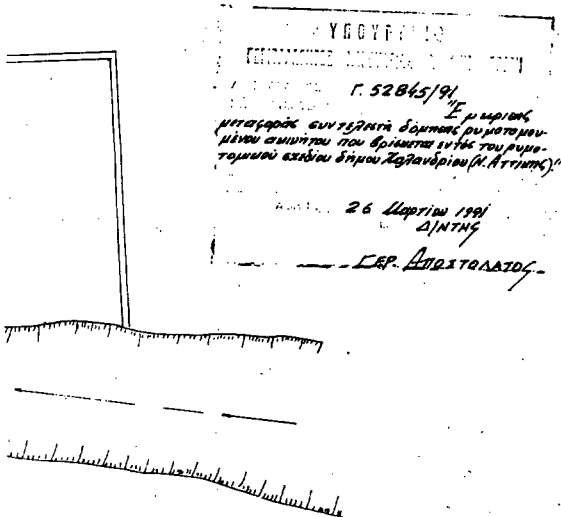 ΥΠΟΥΡΓΕΙΟ
Γ. 52845/91
"Εγκρισης
μεταφοράς συντελεστή δόμησης ρυμοτομου-
μένου ακινήτου που βρίσκεται εντός του ρυμο-
τομικού σχεδίου δήμου Χαλανδρίου (Ν. Αττικής)."
26 Μαρτίου 1991
Δ/ΝΤΗΣ
ΓΕΡ. ΑΠΟΣΤΟΛΑΤΟΣ